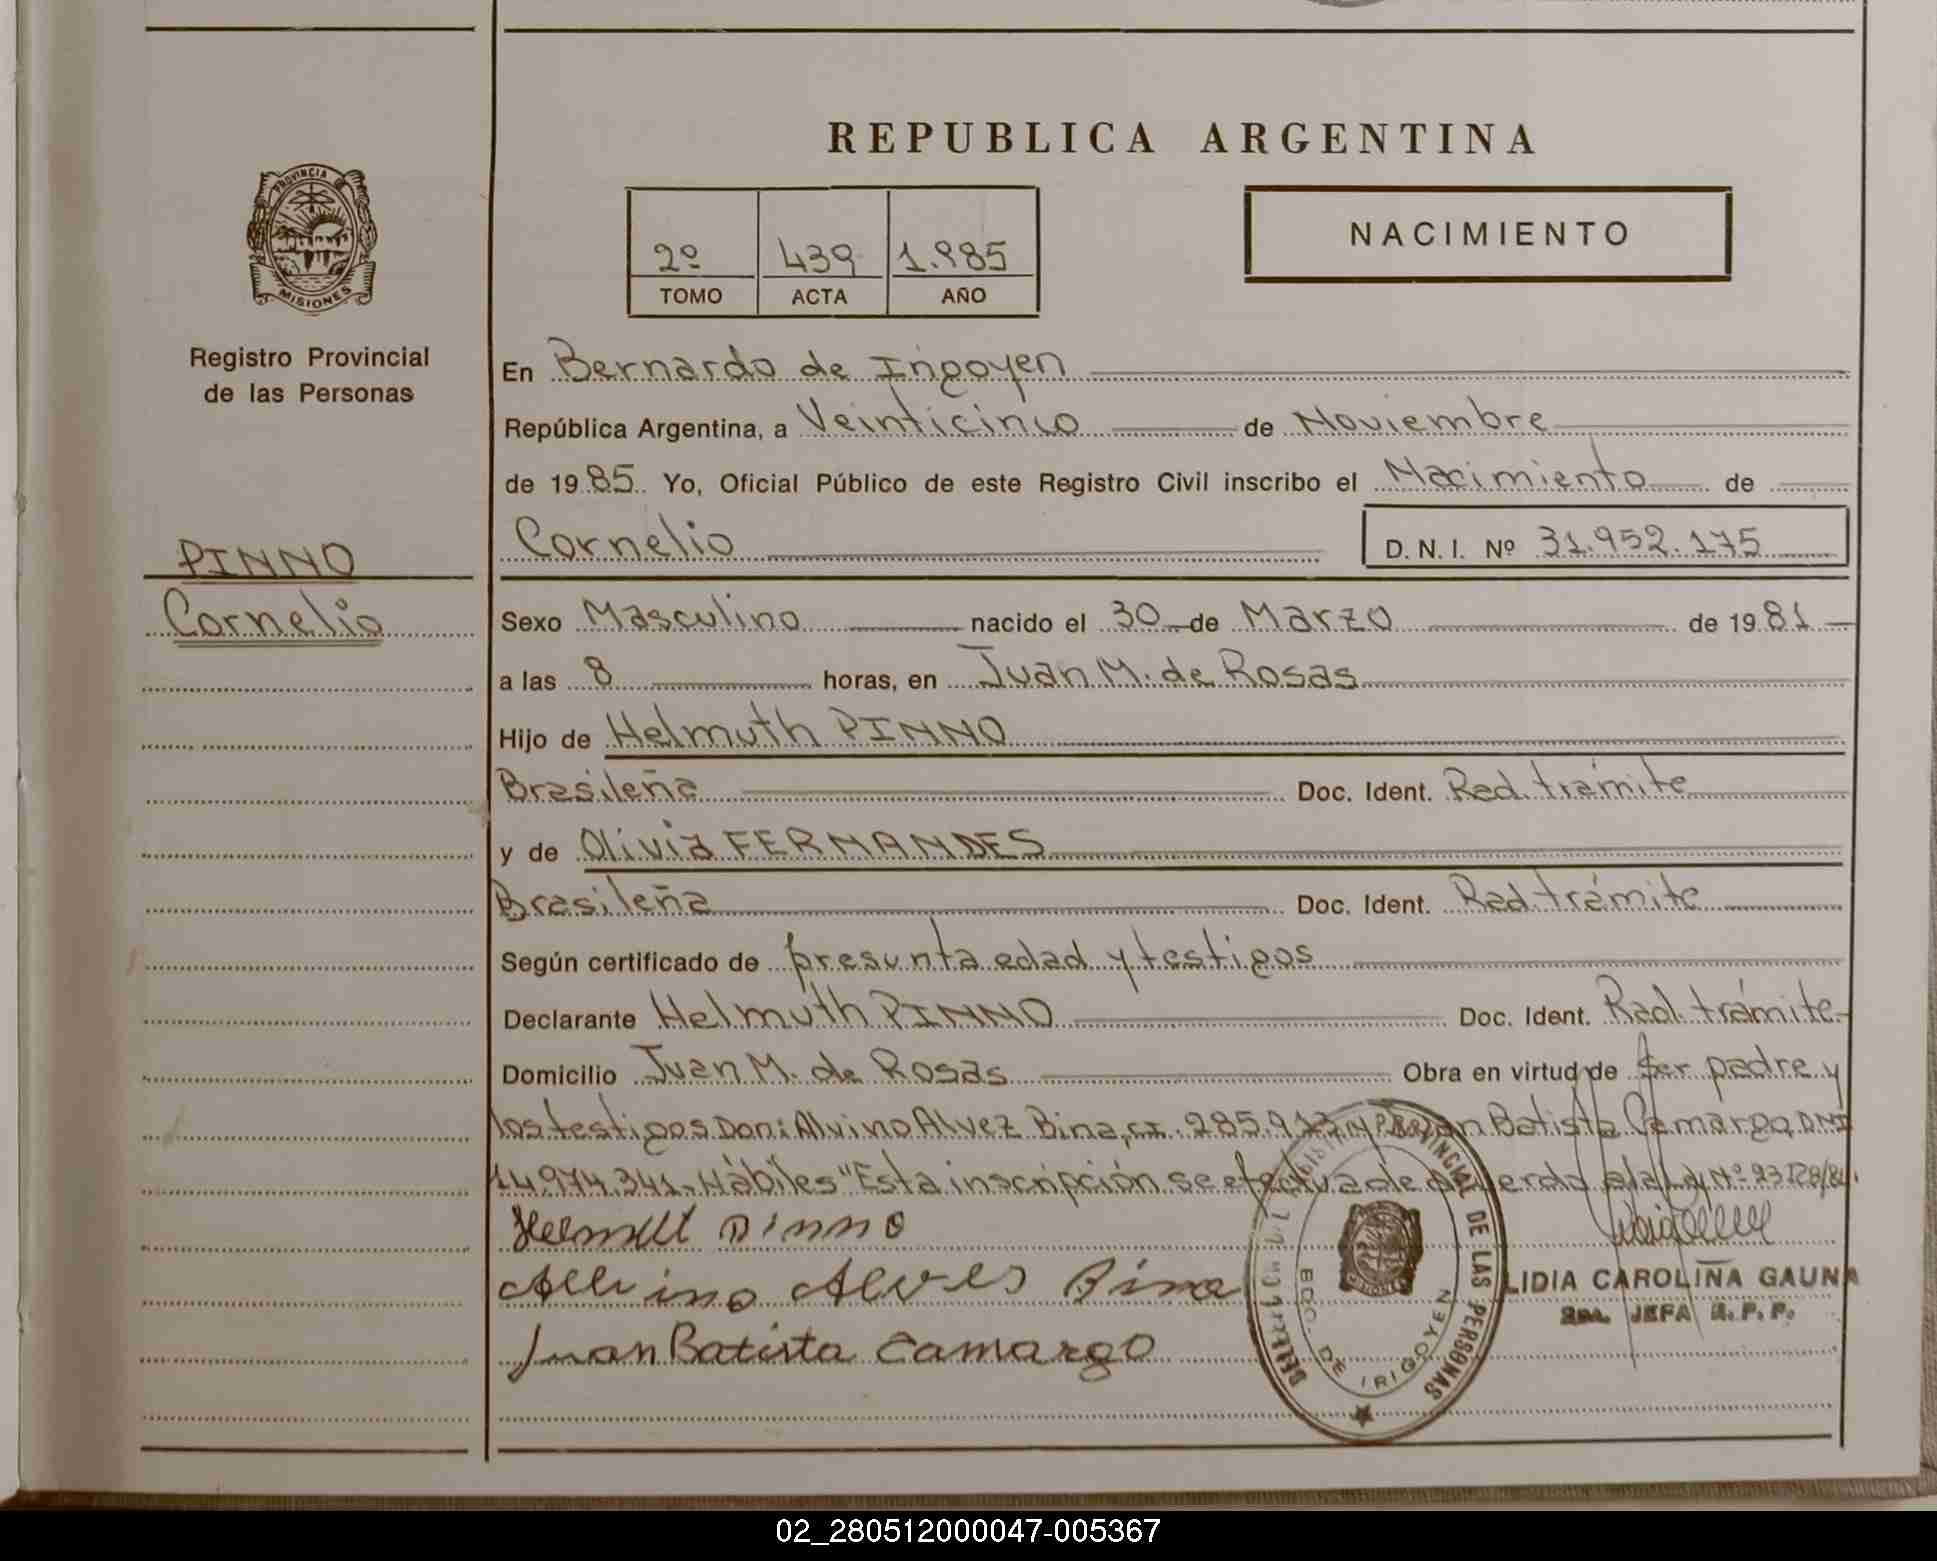 REPUBLICA ARGENTINA
PROVINCIA DE
MISIONES
Registro Provincial
de las Personas
2º 439 1.985
TOMO ACTA AÑO
NACIMIENTO
En Bernardo de Irigoyen
República Argentina, a Veinticinco de Noviembre
de 1985 Yo, Oficial Público de este Registro Civil inscribo el Nacimiento de
Cornelio D. N. I. Nº 31.952.175
PINNO
Cornelio
Sexo Masculino nacido el 30 de Marzo de 1981
a las 8 horas, en Juan M. de Rosas
Hijo de Helmuth PINNO
Brasileña Doc. Ident. Rad. trámite
y de Olivia FERNANDES
Brasileña Doc. Ident. Rad. trámite
Según certificado de presunta edad y testigos
Declarante Helmuth PINNO Doc. Ident. Rad. trámite
Domicilio Juan M. de Rosas Obra en virtud de ser padre y
los testigos Don: Alvino Alvez Bina, CI. 285.913 y Juan Batista Camargo, DNI
14.974.341. Hábiles "Esta inscripción se efectua de acuerdo a la Ley Nº 23.128/84.
Helmutt Pinno
Alvino Alves Bina
Juan Batista Camargo
PROVINCIAL DE LAS PERSONAS
BDO. DE IRIGOYEN
LIDIA CAROLINA GAUNA
JEFA R. P. P.
02_280512000047-005367